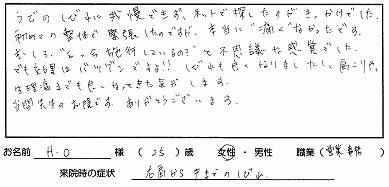 うでのしびれに我慢できず、ネットで探したのがきっかけでした。
初めての整体で緊張したのですが、本当に"痛くなかったです。
むしろ、"えっ？今施行しているの？"と不思議な感覚でした。
でも効果はバツグンです!! しびれも良くなりましたし、肩こりや、
生理痛までも良くなってきた気がします。
当間先生のお陰です。ありがとうございます。
お名前 H.O 様 (25) 歳 女性・男性 職業(営業事務)
来院時の症状 右肩から手までのしびれ